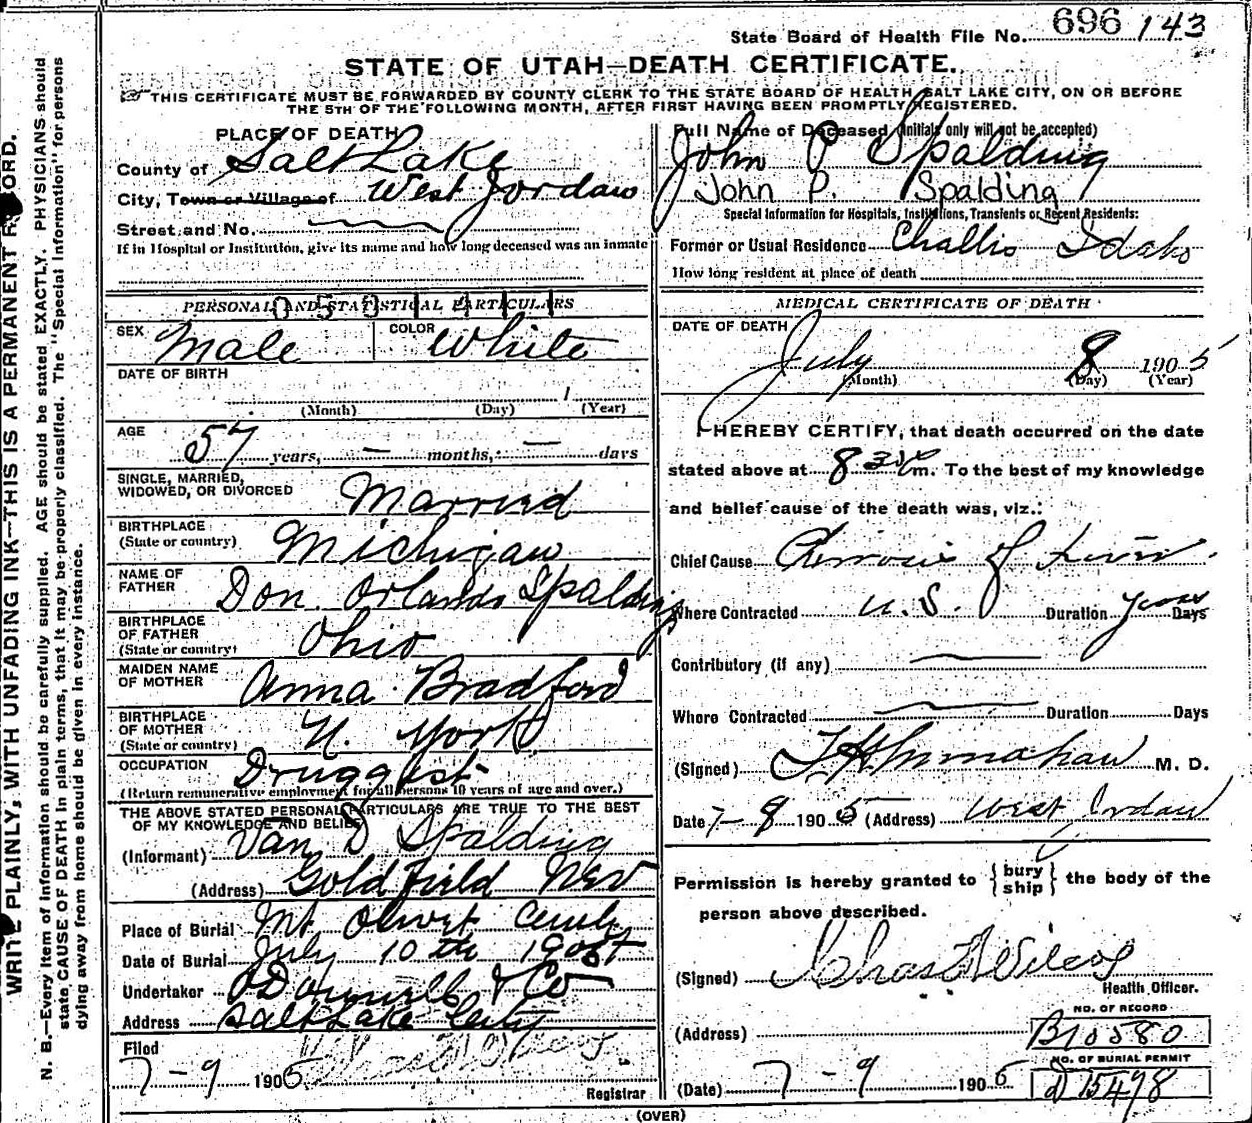 State Board of Health File No. 696 143
STATE OF UTAH—DEATH CERTIFICATE.
THIS CERTIFICATE MUST BE FORWARDED BY COUNTY CLERK TO THE STATE BOARD OF HEALTH, SALT LAKE CITY, ON OR BEFORE
THE 5TH OF THE FOLLOWING MONTH, AFTER FIRST HAVING BEEN PROMPTLY REGISTERED.
WRITE PLAINLY, WITH UNFADING INK—THIS IS A PERMANENT RECORD.
N. B.—Every item of information should be carefully supplied. AGE should be stated EXACTLY. PHYSICIANS should
state CAUSE OF DEATH in plain terms, that it may be properly classified. The "Special Information" for persons
dying away from home should be given in every instance.
PLACE OF DEATH
County of Salt Lake
City, Town or Village of West Jordan
Street and No.
If in Hospital or Institution, give its name and how long deceased was an inmate
PERSONAL AND STATISTICAL PARTICULARS
SEX Male COLOR White
DATE OF BIRTH
1
(Month) (Day) (Year)
AGE 57 years, — months, — days
SINGLE, MARRIED,
WIDOWED, OR DIVORCED Married
BIRTHPLACE
(State or country) Michigan
NAME OF
FATHER Don Orlando Spalding
BIRTHPLACE
OF FATHER
(State or country) Ohio
MAIDEN NAME
OF MOTHER Anna Bradford
BIRTHPLACE
OF MOTHER
(State or country) N. York
OCCUPATION Druggist
(Return remunerative employment for all persons 10 years of age and over.)
THE ABOVE STATED PERSONAL PARTICULARS ARE TRUE TO THE BEST
OF MY KNOWLEDGE AND BELIEF
(Informant) Van D Spalding
(Address) Goldfield Nev
Place of Burial Mt Olivet Cemty
Date of Burial July 10th 1905
Undertaker O'Donnell & Co
Address Salt Lake City
Filed
7-9 1905
Registrar
Full Name of Deceased (Initials only will not be accepted)
John P Spalding
John P. Spalding
Special Information for Hospitals, Institutions, Transients or Recent Residents:
Former or Usual Residence Challis Idaho
How long resident at place of death
MEDICAL CERTIFICATE OF DEATH
DATE OF DEATH
July 8 1905
(Month) (Day) (Year)
I HEREBY CERTIFY, that death occurred on the date
stated above at 8 m. To the best of my knowledge
and belief cause of the death was, viz.:
Chief Cause Cirrosis of Liver
Where Contracted U.S. Duration years Days
Contributory (if any) —
Where Contracted — Duration Days
(Signed) M. D.
Date 7-9 1905 (Address) West Jordan
Permission is hereby granted to { bury
ship } the body of the
person above described.
(Signed) Chas Wilcox
Health Officer.
NO. OF RECORD
(Address) B10580
NO. OF BURIAL PERMIT
(Date) 7-9 1905 D 15498
(OVER)